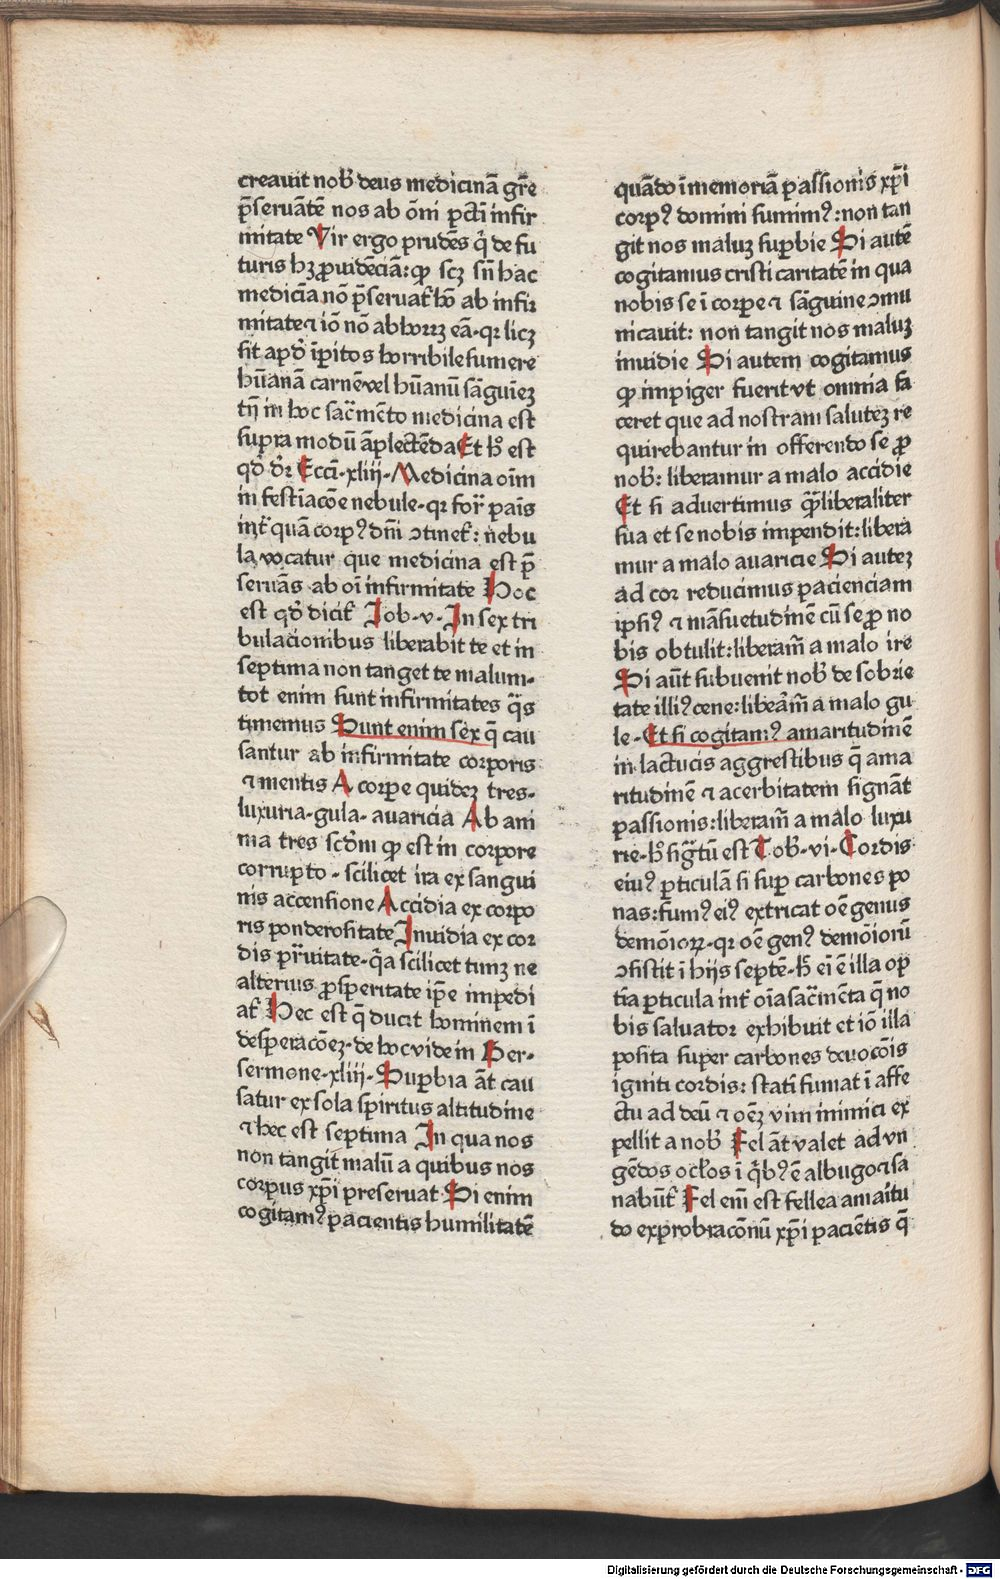 creauit nob̉ deus medicinā gr̄e
p̄seruātē nos ab ōni pct̄i infir
mitate Vir ergo prudēs q̇ de fu
turis hꝫ ꝓuidēciā: ꝙ scꝫ sn̄ hac
medicīa nō p̄seruat̉ hō ab infir
mitate ⁊ iō nō abhorrꝫ eā · qr licꝫ
sit apd̉ īpitos horribile sumere
hūanā carnē vel hūanū sāguīeꝫ
tn̄ in hoc sac̄mēto medicina est
supra modū āplectēda Et h̉ est
qd̉ dr̄ Eccī · xliii · Medicina oīm
in festīacōe nebule · qr for̉ panis
int̉ quā corpꝰ dn̄i ↄtinet̉: nebu
la vocatur que medicina est p̄
seruās ab oī infirmitate Hoc
est qd̉ dicit̉ Iob · v · In sex tri
bulacionibus liberabit te et in
septima non tanget te malum ·
tot enim sunt infirmitates q̄s
timemus Sunt enim sex q̄ cau
santur ab infirmitate corporis
⁊ mentis A corpe quideꝫ tres ·
luxuria · gula · auaricia Ab ani
ma tres scd̄m ꝙ est in corpore
corrupto · scilicet ira ex sangui
nis accensione Accidia ex corpo
ris ponderositate Inuidia ex cor
dis pr̄uitate · q̄a scilicet timꝫ ne
alterius ꝓsperitate ip̄e impedi
at̉ Hec est q̄ ducit hominem ī
desperacōeꝫ · de hoc vide in Ber ·
sermone · xliii · Supbia āt cau
satur ex sola spiritus altitudine
⁊ hec est septima In qua nos
non tangit malū a quibus nos
corpus xp̄i preseruat Si enim
cogitamꝰ pacientis humilitatē
quādo ī memoriā passionis xp̄i
corpꝰ domini sumimꝰ: non tan
git nos maluꝫ supbie Si autē
cogitamus cristi caritatē in qua
nobis se ī corpe ⁊ sāguine ↄmu
nicauit: non tangit nos maluꝫ
inuidie Si autem cogitamus
ꝙ impiger fuerit vt omnia fa
ceret que ad nostram saluteꝫ re
quirebantur in offerendo se ꝓ
nob̉: liberamur a malo accidie
Et si aduertimus q̄liberaliter
sua et se nobis impendit: libera
mur a malo auaricie Si auteꝫ
ad cor reducimus pacienciam
ipsiꝰ ⁊ māsuetudinē cū se ꝓ no
bis obtulit: liberam̄ a malo ire
Si aūt subuenit nob̉ de sobrie
tate illiꝰ cene: libeām̄ a malo gu
le · Et si cogitamꝰ amaritudinē
in lactucis aggrestibus q̄ ama
ritudinē ⁊ acerbitatem signāt
passionis: liberam̄ a malo luxu
rie · h̉ sig̉tū est Tob̉ · vi · Cordis
eiuꝰ pticulā si sup carbones po
nas: fumꝰ eiꝰ extricat oē genus
demōioꝝ · qr oē genꝰ demōiorū
ↄsistit ī hijs septē · h̉ eī ē illa op
tīa pticula int̉ oīa sac̄mēta q̄ no
bis saluator exhibuit et iō illa
posita super carbones deuocōis
igniti cordis: statī fumat ī affe
ctu ad deū ⁊ oēꝫ vim inimici ex
pellit a nob̉ Fel āt valet ad vn
gēdos oclos ī q̇bꝰ ē albugo ⁊ sa
nabūt̉ Fel em̄ est fellea amaitu
do exprobracōnū xp̄i paciētis q̄
Digitalisierung gefördert durch die Deutsche Forschungsgemeinschaft - DFG